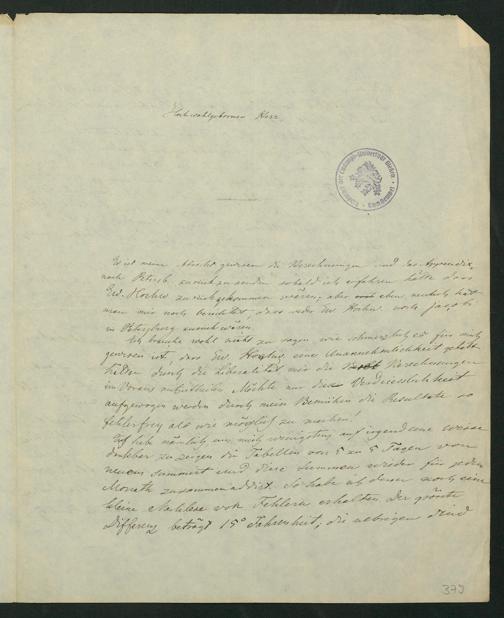 Hochwohlgeborner Herr.
Es ist meine Absicht gewesen die Berechnungen und das Appendix
nach Petersb. zurück zu senden sobald ich erfahren hätte dass
Ew. Hochw. zurückgekommen wären, aber eben neulich hat
man mir noch berichtet, dass Ew. Hochw. noch
in Petersburg
Ich brauche wohl nicht zu sagen wie schmerzlich es für mich
gewesen ist, dass Ew. eine Unannehmlichkeit gehabt
haben durch die Liberalität mir die Berechnungen
im Voraus mitzutheilen. Möchte nur diese Verdriesslichkeit
aufgewogen werden durch mein Bemühen die Resultate so
fehlerfrey als wie möglich zu machen!
Ich hab nämlich um mich wenigstens auf irgend eine Weise
dankbar zu zeigen die Tabellen von 5 zu 5 Tagen von
neuem summirt und diese Summen wieder für jeden
Monath zusammen addirt. So habe ich denn noch eine
kleine Nachlese von Fehlern erhalten. Der grösste
Differenz beträgt 15° Fahrenheit, die uebrigen sind
379